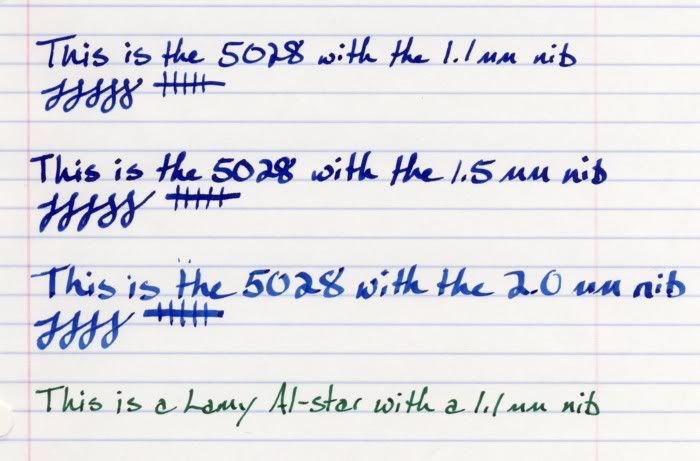 This is the 5028 with the 1.1 mm nib
This is the 5028 with the 1.5 mm nib
This is the 5028 with the 2.0 mm nib
This is a Lamy Al-star with a 1.1 mm nib